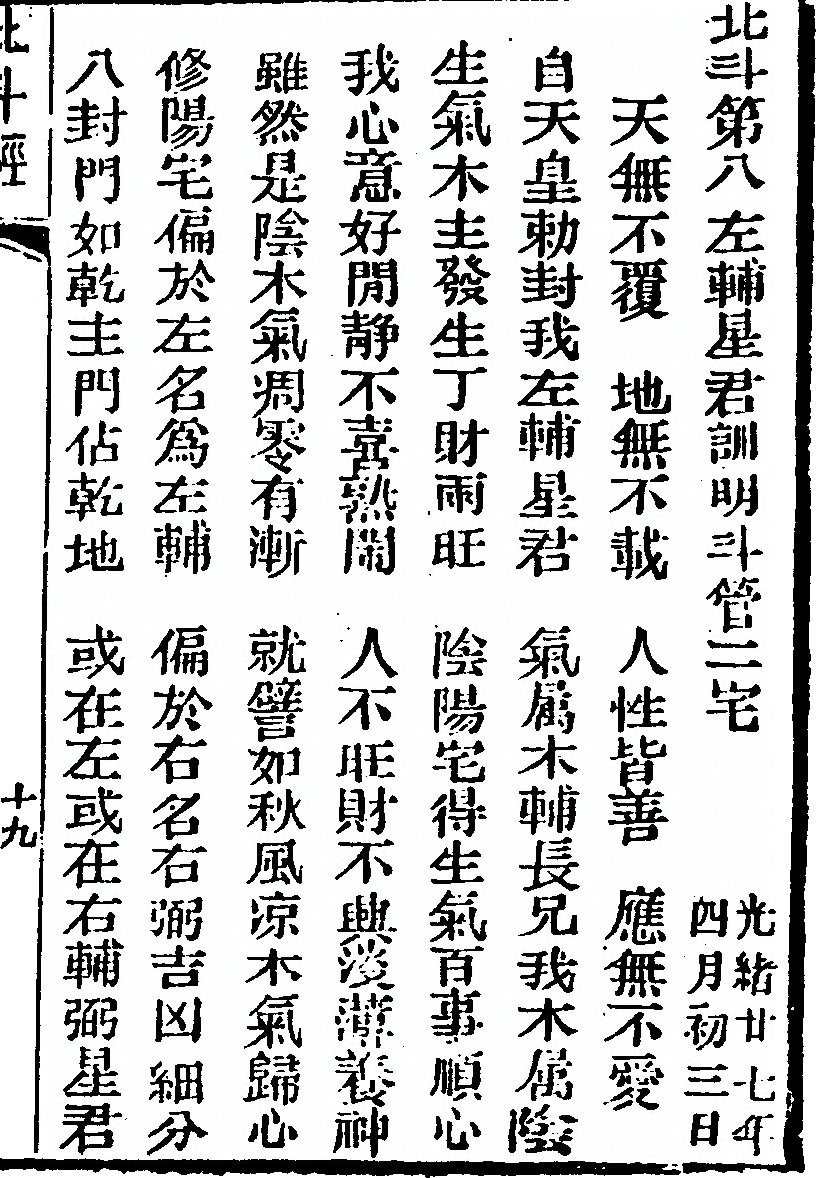 北斗第八左輔星君訓明斗管二宅 光緒廿七年四月初三日
天無不覆 地無不載 人性皆善 應無不愛
自天皇勅封我左輔星君 氣属木輔長兄我木属陰
生氣木主發生丁財兩旺 陰陽宅得生氣百事順心
我心意好閒靜不喜熱鬧 人不旺財不興淡薄養神
雖然是陰木氣凋零有漸 就譬如秋風凉木氣歸心
修陽宅偏於左名為左輔 偏於右名右弼吉凶細分
八封門如乾主門佔乾地 或在左或在右輔弼星君
北斗經
十九